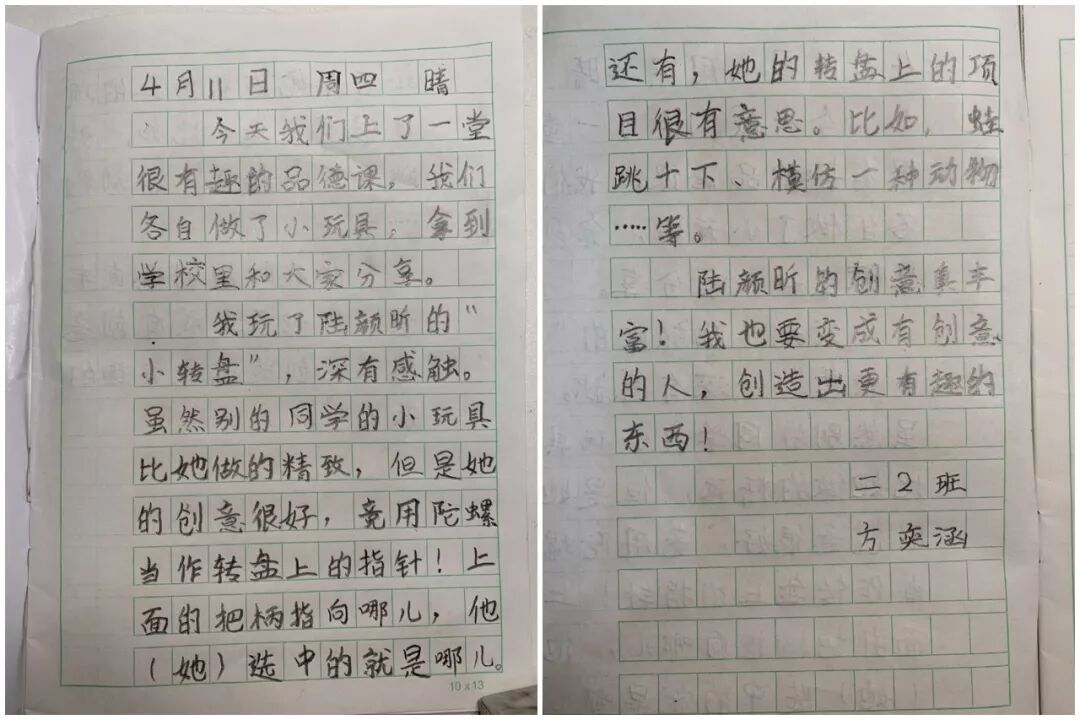 4月11日 周四 晴
今天我们上了一堂
很有趣的品德课，我们
各自做了小玩具，拿到
学校里和大家分享。
我玩了陆颜昕的“
小转盘”，深有感触。
虽然别的同学的小玩具
比她做的精致，但是她
的创意很好，竟用陀螺
当作转盘上的指针！上
面的把柄指向哪儿，他
（她）选中的就是哪儿。
10×13
还有，她的转盘上的项
目很有意思。比如，蛙
跳十下、模仿一种动物
……等。
陆颜昕的创意真丰
富！我也要变成有创意
的人，创造出更有趣的
东西！
二2班
方奕涵